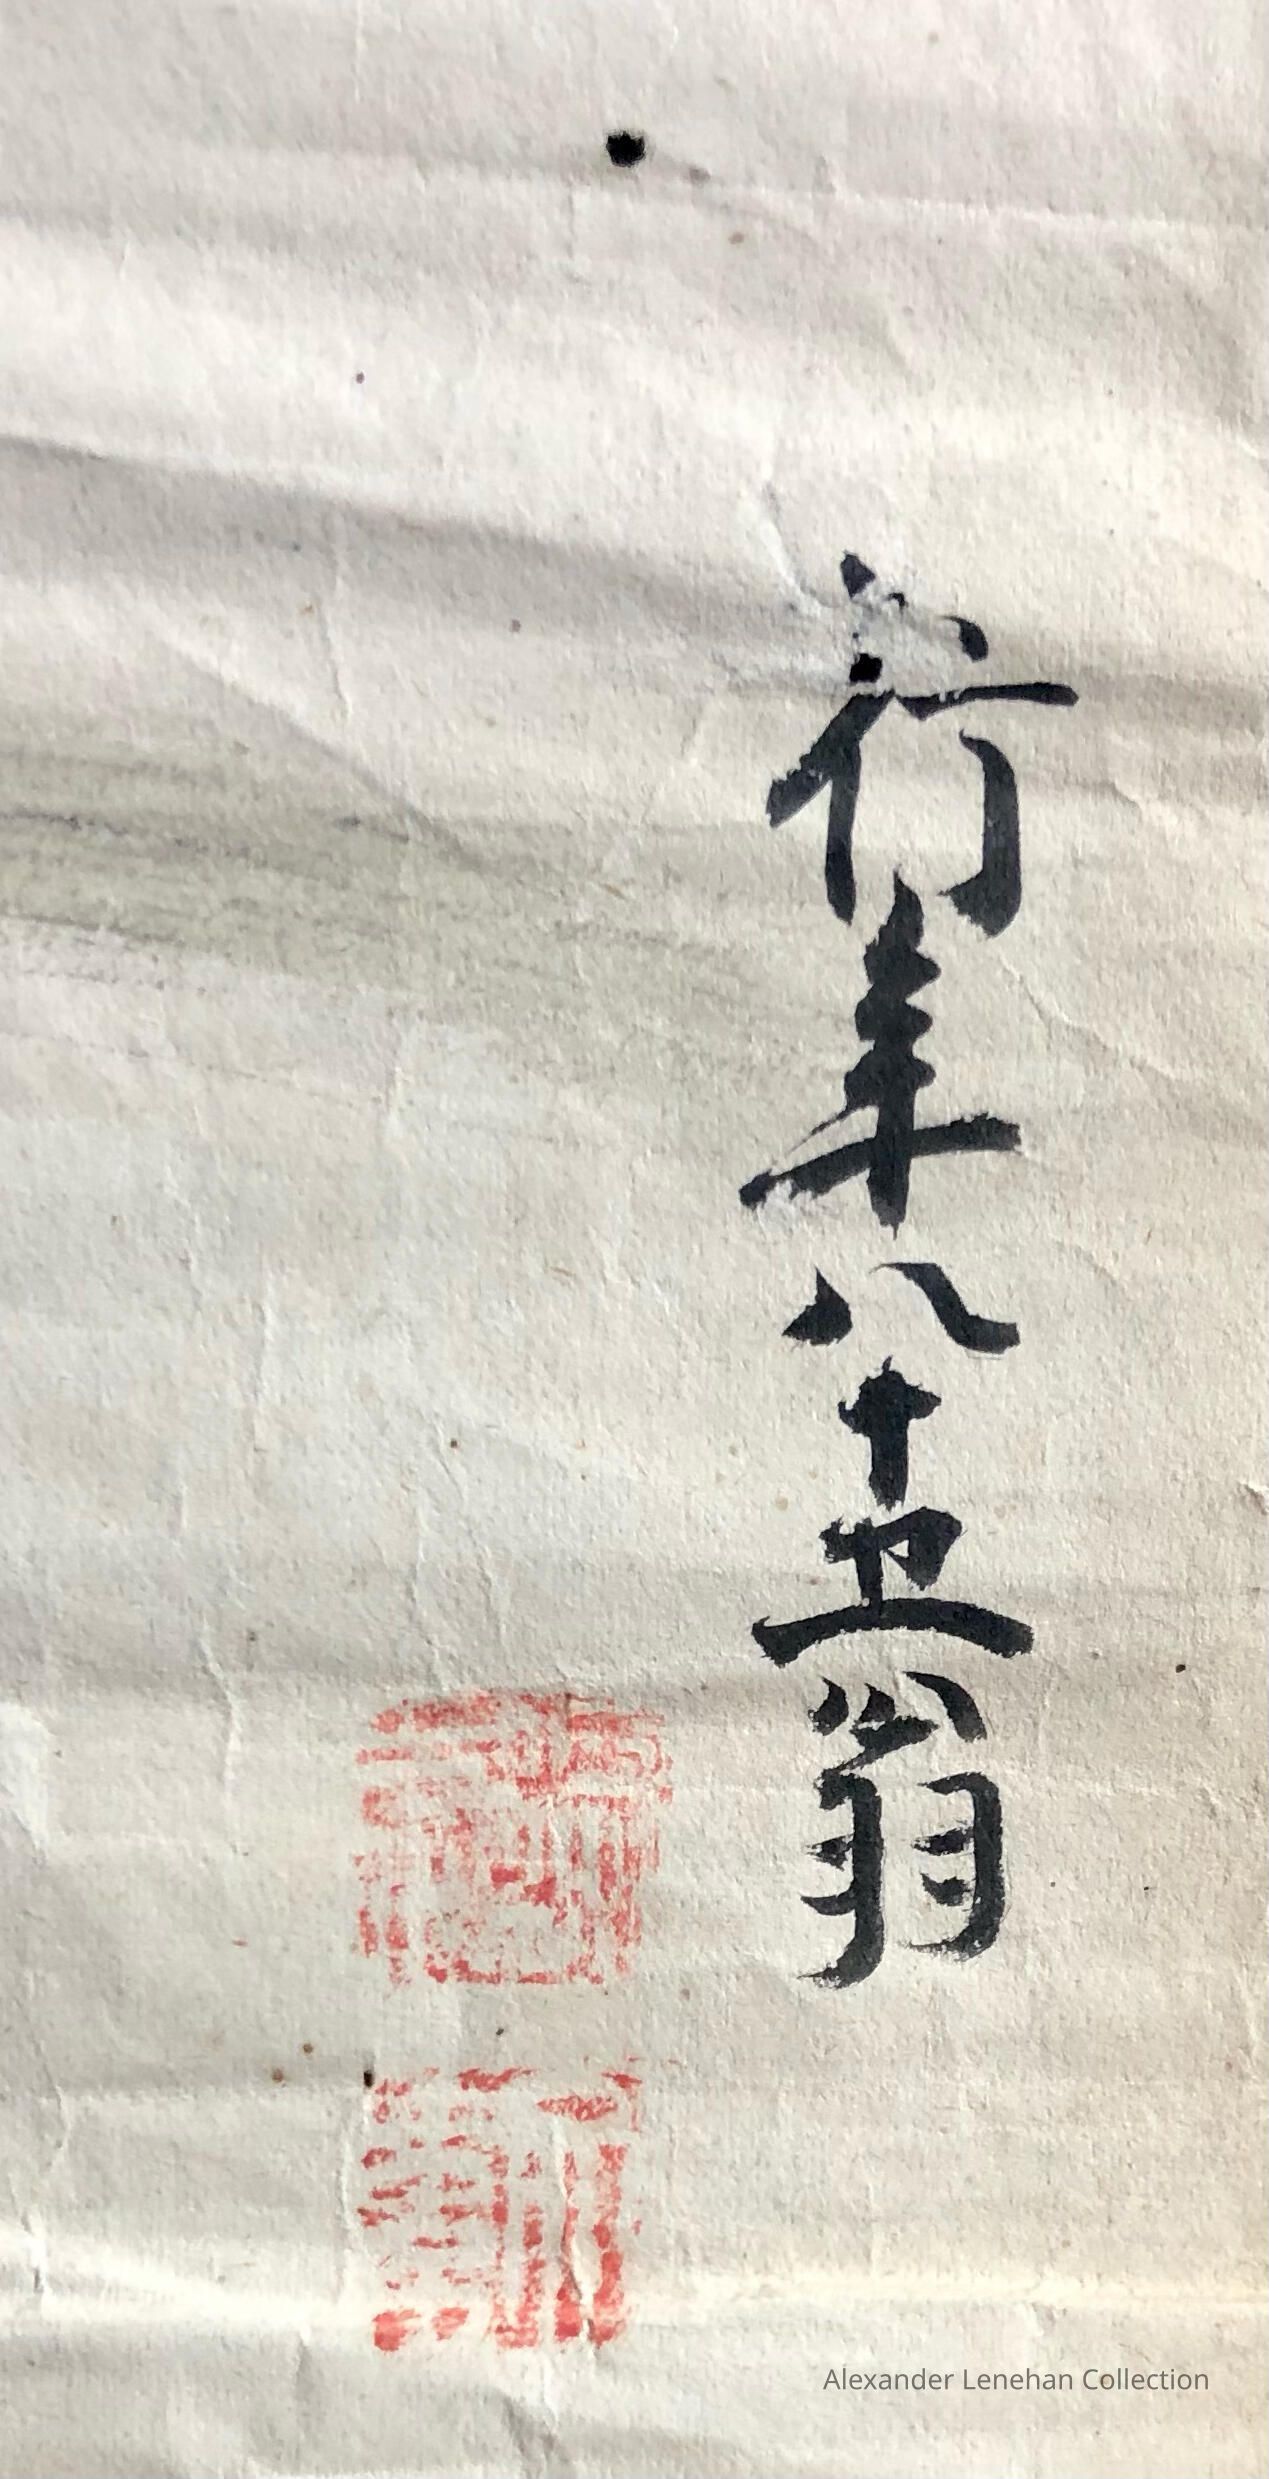 行年八十五翁
Alexander Lenehan Collection